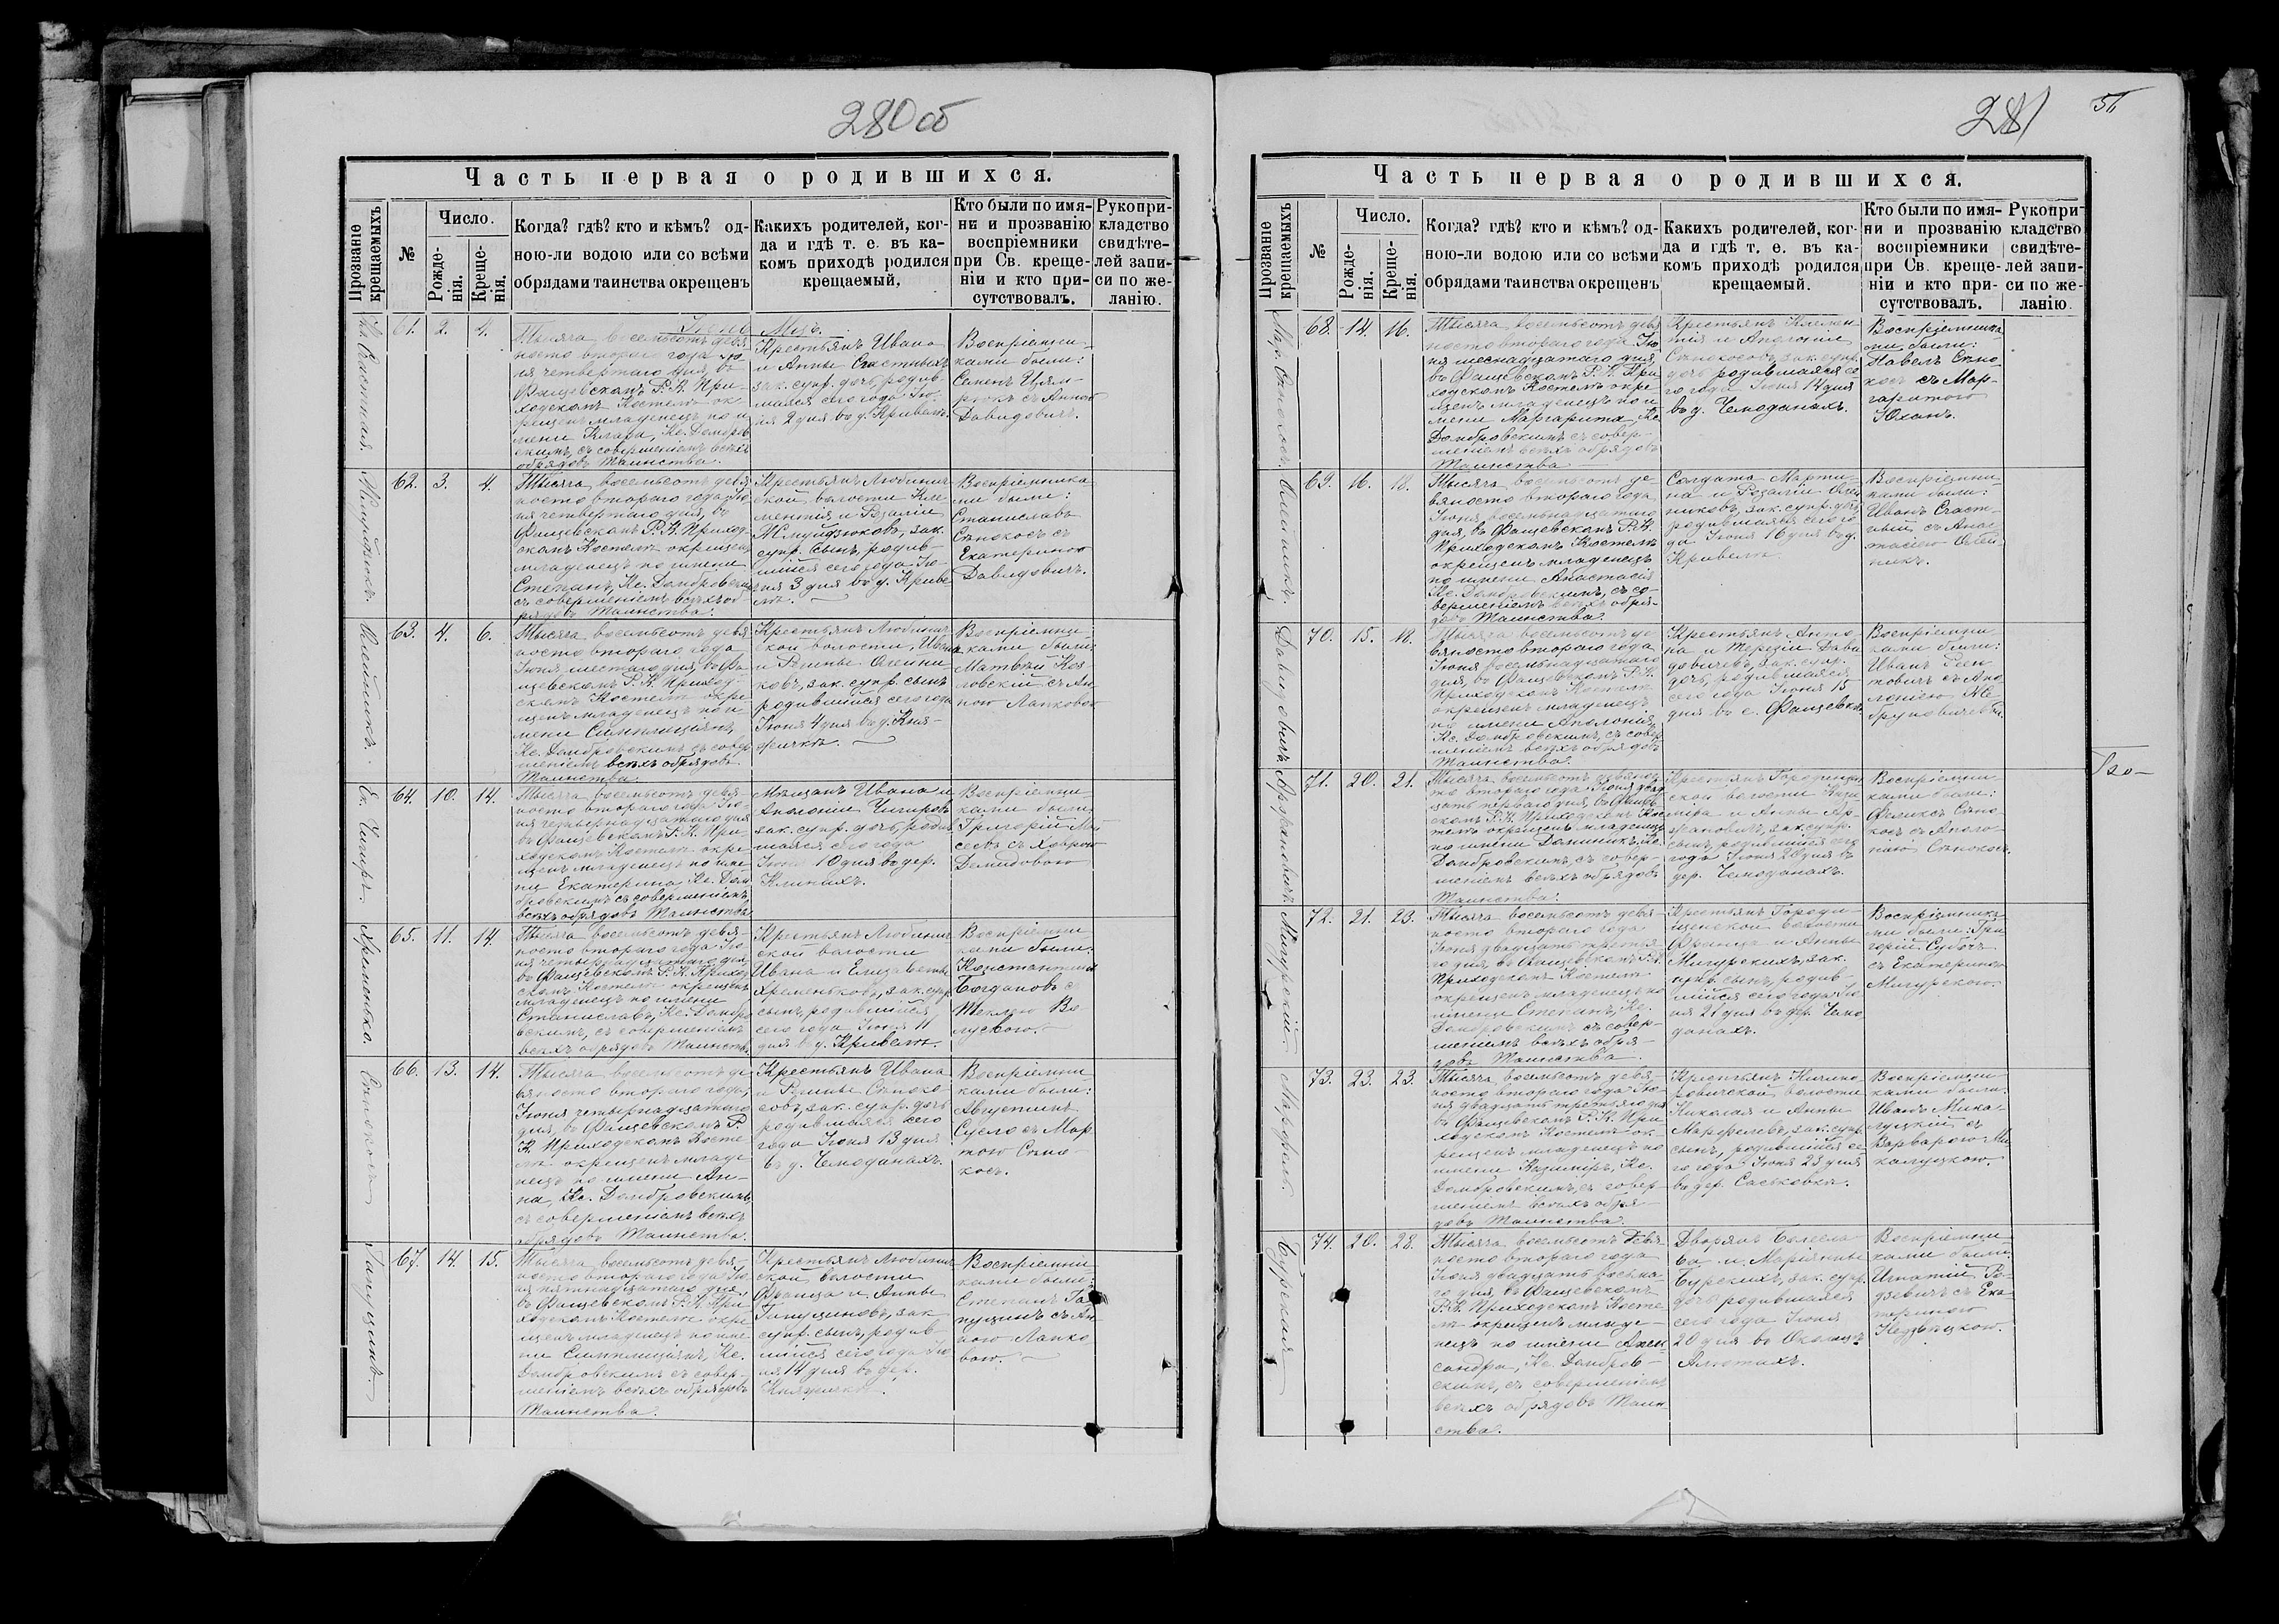 280 об
Часть первая о родившихся.
Прозваніе крещаемыхъ
№
Число.
Рожде-
нія.
Креще-
нія.
Когда? гдѣ? кто и кѣмъ? од-
ною-ли водою или со всѣми
обрядами таинства окрещенъ
Какихъ родителей, ког-
да и гдѣ т. е. въ ка-
комъ приходѣ родился
крещаемый.
Кто были по имя-
ни и прозванію
воспріемники
при Св. креще-
ніи и кто при-
сутствовалъ.
Рукопри-
кладство
свидѣте-
лей запи-
си по же-
ланію.
61. 2. 4.
Тысяча восемьсотъ девя
носто второго года Ію
ня четвертаго дня, въ
Фащевскомъ Р. К. При
ходскомъ Костелѣ ок
рещенъ младенецъ по и
мени Клара, Кс. Домбров
скимъ, съ совершеніемъ всѣхъ
обрядовъ Таинства.
Крестьянъ Ивана
и Анны Счастныхъ
зак. супр. дочь, родив-
шаяся сего года Ію-
ня 2 дня въ д. Кривелѣ.
Воспріемни-
ками были:
Семенъ
съ Анною
Давидовичъ.
62. 3. 4.
Тысяча восемьсотъ девя
носто второго года Ію
ня четвертаго дня, въ
Фащевскомъ Р. К. Приход
скомъ Костелѣ окрещенъ
младенецъ по имени
Степанъ, Кс. Домбровскимъ
съ совершеніемъ всѣхъ об-
рядовъ Таинства.
Крестьянъ Любинич
ской волости Кле
ментія и Розаліи
зак.
супр. сынъ, родив-
шійся сего года Ію-
ня 3 дня въ д. Криве
лѣ.
Воспріемника
ми были:
Станиславъ
Сѣнокосъ съ
Екатериною
Давидовичъ.
63. 4. 6.
Тысяча восемьсотъ девя
носто второго года
Іюня шестаго дня, въ Фа
щевскомъ Р. К. Приход-
скомъ Костелѣ окре
щенъ младенецъ по и
мени Симплиціанъ,
Кс. Домбровскимъ съ совер
шеніемъ всѣхъ обрядовъ
Таинства.
Крестьянъ Любинич
ской волости, Ивана
и Регины Олейни
ковъ, зак. супр. сынъ
родившійся сего года
Іюня 4 дня въ д. Кня-
жичкѣ.
Воспріемни
ками были:
Матвѣй Коз-
ловскій съ Ан
ною Лапковою
64. 10. 14.
Тысяча восемьсотъ девя-
носто второго года Ію-
ня четырнадцатаго дня
въ Фащевскомъ Р. К. При
ходскомъ Костелѣ окре
щенъ младенецъ по име
ни Екатерина, Кс. Дом
бровскимъ съ совершеніемъ
всѣхъ обрядовъ Таинства
Мѣщанъ Ивана и
Аполоніи Чигировъ
зак. супр. дочь, родив
шаяся сего года
Іюня 10 дня въ дер.
Клинахъ.
Воспріемни-
ками были
Григорій
съ
Демидовою
65. 11. 14.
Тысяча восемьсотъ девя-
носто второго года Ію
ня четырнадцатаго дня,
въ Фащевскомъ Р. К. Приход
скомъ Костелѣ окрещенъ
младенецъ по имени
Станиславъ, Кс. Домбро
вскимъ, съ совершеніемъ
всѣхъ обрядовъ Таинства.
Крестьянъ Любинич
ской волости
Ивана и Елизаветы
Хременьковъ, зак. супр.
сынъ, родившійся
сего года Іюня 11
дня въ д. Кривелѣ.
Воспріемни
ками были:
Константинъ
Богдановъ съ
Теклею
66. 13. 14.
Тысяча восемьсотъ де
вяносто второго года,
Іюня четырнадцатаго
дня, въ Фащевскомъ Р.
К. Приходскомъ Косте
лѣ окрещенъ младе
нецъ по имени Ан-
на, Кс. Домбровскимъ
съ совершеніемъ всѣхъ
обрядовъ Таинства.
Крестьянъ Ивана
и Сѣноко
совъ, зак. супр. дочь
родившаяся сего
года Іюня 13 дня
въ д. Чемоданахъ.
Воспріемни-
ками были:
Августинъ
Сусло съ Мар
тою Сѣно-
косъ.
67. 14. 15.
Тысяча восемьсотъ девя-
носто второго года Ію
ня пятнадцатаго дня,
въ Фащевскомъ Р. К. При
ходскомъ Костелѣ окре
щенъ младенецъ по име
ни Симплиціанъ, Кс.
Домбровскимъ съ совер-
шеніемъ всѣхъ обрядовъ
Таинства.
Крестьянъ Любинич
ской волости
Франца и Анны
Гапущиновъ, зак
супр. сынъ, родив-
шійся сего года Ію
ня 14 дня въ дер.
Княжичкѣ.
Воспріемни-
ками были:
Степанъ Га
пущинъ съ Ан
ною Лапко-
вою.
281
Часть первая о родившихся.
Прозваніе крещаемыхъ
№
Число.
Рожде-
нія.
Креще-
нія.
Когда? гдѣ? кто и кѣмъ? од-
ною-ли водою или со всѣми
обрядами таинства окрещенъ
Какихъ родителей, ког-
да и гдѣ т. е. въ ка-
комъ приходѣ родился
крещаемый.
Кто были по имя-
ни и прозванію
воспріемники
при Св. креще-
ніи и кто при-
сутствовалъ.
Рукопри-
кладство
свидѣте-
лей запи-
си по же-
ланію.
68. 14. 16.
Тысяча восемьсотъ девя
носто второго года Ію
ня шеснадцатаго дня,
въ Фащевскомъ Р. К. При
ходскомъ Костелѣ окре
щенъ младенецъ по и
мени Маргарита, Кс.
Домбровскимъ съ совер-
шеніемъ всѣхъ обрядовъ
Таинства
Крестьянъ Клемен
тія и Аполоніи
Сѣнокосовъ, зак. супр.
дочь родившаяся се-
го года Іюня 14 дня
въ д. Чемоданахъ.
Воспріемника
ми были:
Павелъ Сѣно
косъ съ Мар-
гаритою
Юханъ.
69. 16. 18.
Тысяча восемьсотъ де
вяносто второго года
Іюня восемьнадцатаго
дня, въ Фащевскомъ Р. К.
Приходскомъ Костелѣ
окрещенъ младенецъ
по имени Анастасія
Кс. Домбровскимъ, съ со-
вершеніемъ всѣхъ обря-
довъ Таинства.
Солдата Марти-
на и Розаліи Олей
никовъ, зак. супр. дочь
родившаяся сего го
да Іюня 16 дня въ д.
Кривелѣ
Воспріемни-
ками были:
Иванъ Счаст-
ный съ Анас
тасіею Олей
никъ.
70. 15. 18.
Тысяча восемьсотъ де
вяносто второго года
Іюня восемьнадцатаго
дня, въ Фащевскомъ Р. К.
Приходскомъ Костелѣ
окрещенъ младенецъ
по имени Аполонія,
Кс. Домбровскимъ, съ совер
шеніемъ всѣхъ обрядовъ
Таинства.
Крестьянъ Анто-
на и Терезіи Дави
довичевъ, зак. супр.
дочь, родившаяся
сего года Іюня 15
дня въ с. Фащевкѣ.
Воспріемни
ками были:
Иванъ
съ Апо
лоніею
71. 20. 21.
Тысяча восемьсотъ девянос
то второго года Іюня двад
цать перваго дня, въ Фащев
скомъ Р. К. Приходскомъ Кос
телѣ окрещенъ младенецъ
по имени Доминикъ, Кс.
Домбровскимъ, съ совер-
шеніемъ всѣхъ обрядовъ
Таинства.
Крестьянъ Городищен
ской волости Кази-
міра и Анны
зак. супр.
сынъ, родившійся сего
года Іюня 20 дня въ
дер. Чемоданахъ.
Воспріемни-
ками были:
Феликсъ Сѣно
косъ съ Аполо-
ніею Сѣнокосъ.
72. 21. 23.
Тысяча восемьсотъ девя-
носто второго года
Іюня двадцать третья-
го дня, въ Фащевскомъ Р. К.
Приходскомъ Костелѣ
окрещенъ младенецъ по
имени Степанъ, Кс.
Домбровскимъ съ совер-
шеніемъ всѣхъ обря-
довъ Таинства.
Крестьянъ Городи-
щенской волости
Франца и Анны
Мигурскихъ, зак.
супр. сынъ, родив-
шійся сего года Ію
ня 21 дня въ дер. Чемо
данахъ.
Воспріемника-
ми были: Гри
горій Субочъ
съ Екатериною
Мигурскою.
73. 23. 23.
Тысяча восемьсотъ девя-
носто второго года Ію-
ня двадцать третьяго дня
въ Фащевскомъ Р. К. При
ходскомъ Костелѣ ок-
рещенъ младенецъ по
имени Казиміръ, Кс.
Домбровскимъ, съ совер-
шеніемъ всѣхъ обря-
довъ Таинства.
Крестьянъ
волости
Николая и Анны
зак. супр.
сынъ, родившійся се-
го года Іюня 23 дня
въ дер. Саськовкѣ.
Воспріемни-
ками были:
Иванъ Мика-
луцкій съ
Варварою Ми
калуцкою.
74. 20. 28.
Тысяча восемьсотъ девя
носто второго года
Іюня двадцать восьма-
го дня, въ Фащевскомъ
Р. К. Приходскомъ Косте
лѣ окрещенъ младе-
нецъ по имени Алек-
сандра, Кс. Домбров-
скимъ, съ совершеніемъ
всѣхъ обрядовъ Таин
ства.
Дворянъ Болесла-
ва и Маріянны
Бурскихъ, зак. супр.
дочь родившаяся
сего года Іюня
20 дня въ Околицѣ
Воспріемни-
ками были:
Игнатій Ро-
дзевичъ съ Ека-
териною